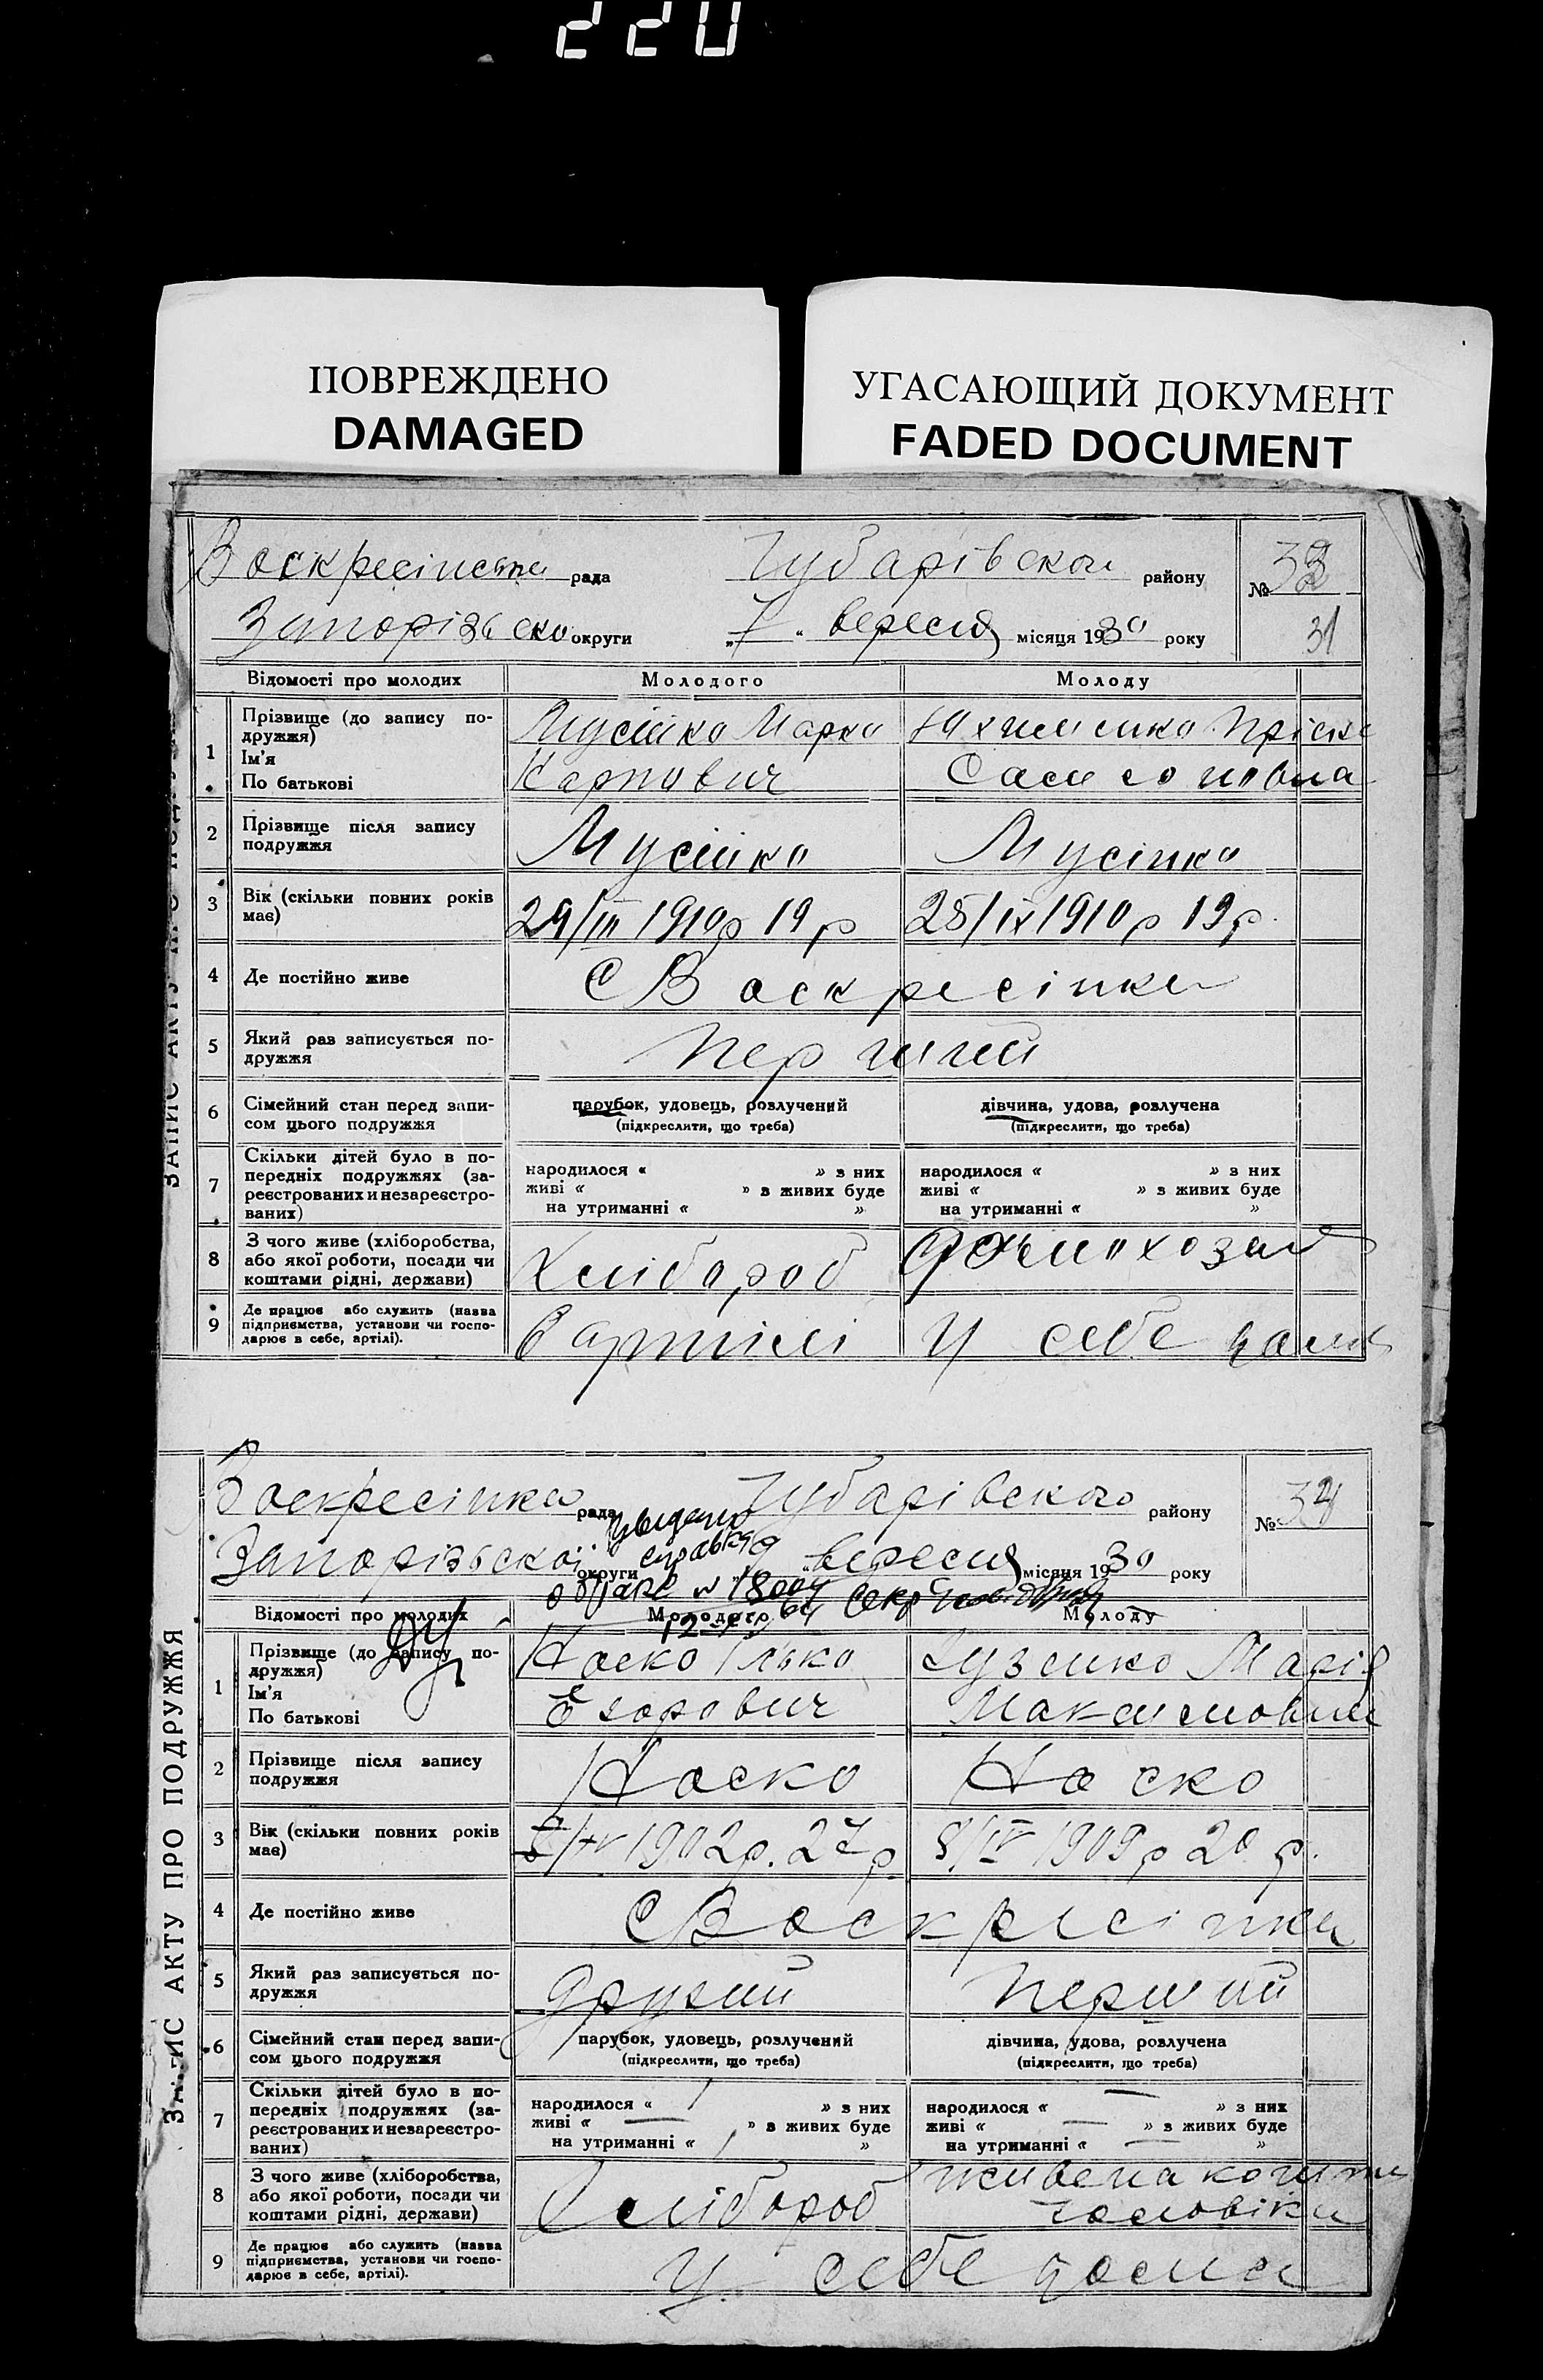 220
ПОВРЕЖДЕНО
DAMAGED
УГАСАЮЩИЙ ДОКУМЕНТ
FADED DOCUMENT
ЗАПИС АКТУ ПРО ПОДРУЖЖЯ
рада Чубарівської району №
округи „7“ вересня місяця 1930 року 31
Відомості про молодих Молодого Молоду
1 Прізвище (до запису подружжя) Ім'я По батькові
Мусійко Марко
Карпович
2 Прізвище після запису подружжя
Мусійко Мусійко
3 Вік (скільки повних років має)
29/III 1910р 19 р 25/IX 1910р 19 р.
4 Де постійно живе
С Воскресінка
5 Який раз записується подружжя
Перший
6 Сімейний стан перед записом цього подружжя
парубок, удовець, розлучений дівчина, удова, розлучена
(підкреслити, що треба) (підкреслити, що треба)
7 Скільки дітей було в попередніх подружжях (зареєстрованих и незареєстрованих)
народилося « » з них народилося « » з них
живі « » з живих буде живі « » з живих буде
на утриманні « » на утриманні « »
8 З чого живе (хліборобства, або якої роботи, посади чи коштами рідні, держави)
Хлібороб Домохозяй
9 Де працює або служить (назва підприємства, установи чи господарює в себе, артілі).
В артілі У себе дома
ЗАПИС АКТУ ПРО ПОДРУЖЖЯ
Воскресінка рада Чубарівського району №
Запорізької округи „9“ вересня місяця 1930 року
Відомості про молодих Молодого Молоду
1 Прізвище (до запису подружжя) Ім'я По батькові
Носко Ілько Кузенко Марія
Егорович Максимовна
2 Прізвище після запису подружжя
Носко Носко
3 Вік (скільки повних років має)
1902р. 27 р 8/IV 1909 р 20 р.
4 Де постійно живе
С Воскресінка
5 Який раз записується подружжя
Другий Перший
6 Сімейний стан перед записом цього подружжя
парубок, удовець, розлучений дівчина, удова, розлучена
(підкреслити, що треба) (підкреслити, що треба)
7 Скільки дітей було в попередніх подружжях (зареєстрованих и незареєстрованих)
народилося « 1 » з них народилося « — » з них
живі « — » з живих буде живі « — » з живих буде
на утриманні « 1 » на утриманні « — »
8 З чого живе (хліборобства, або якої роботи, посади чи коштами рідні, держави)
Хлібороб живе на кошти
чоловіка
9 Де працює або служить (назва підприємства, установи чи господарює в себе, артілі).
У себе дома